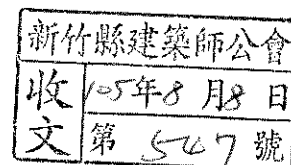 新竹縣建築師公會
收文
105年8月8日
第547號